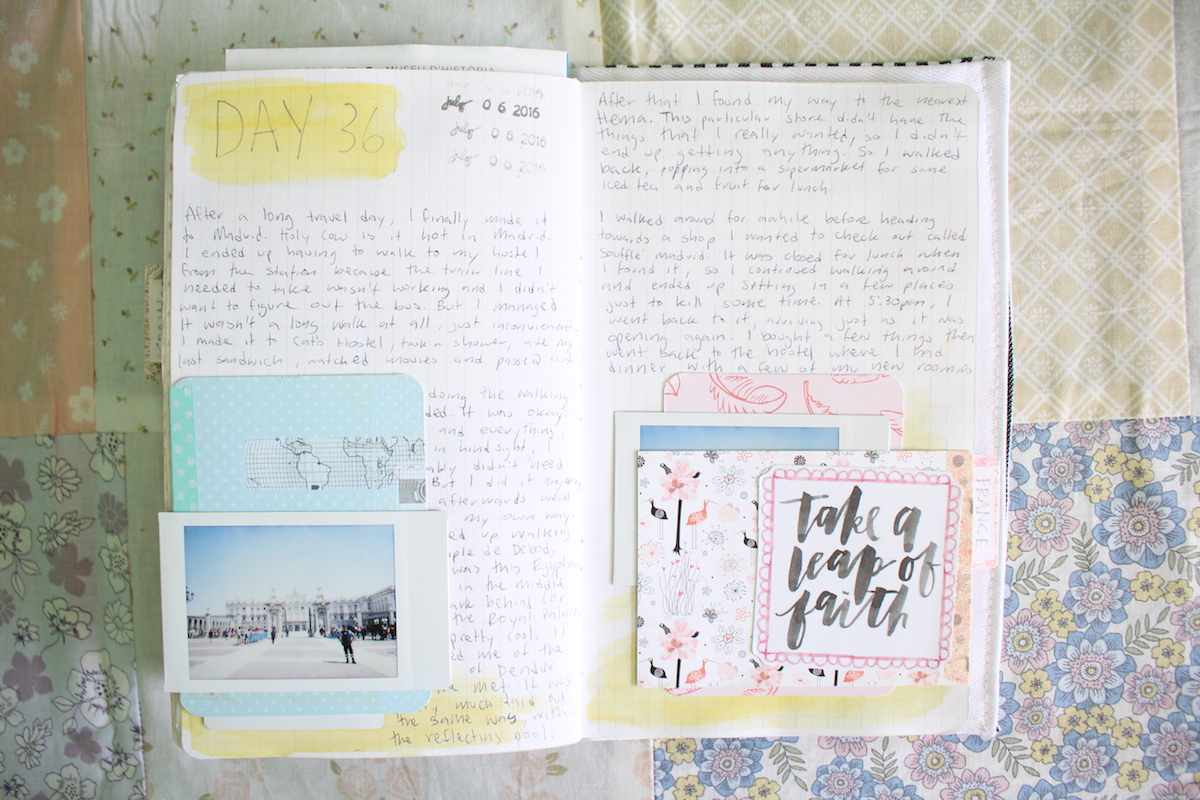 MUSEU D'HISTÒRIA
DAY 36
July 06 2016
July 06 2016
July 06 2016
July 06 2016
After a long travel day, I finally made it
to Madrid. Holy cow is it hot in Madrid.
I ended up having to walk to my hostel
from the station because the train line I
needed to take wasn't working and I didn't
want to figure out the bus. But I managed
It wasn't a long walk at all, just inconvenient.
I made it to Cats Hostel, took a shower, ate my
last sandwich, watched movies and passed out
doing the walking
ded. It was okay.
and everything,
in hindsight, I
ably didn't need
But I did it anyway
afterwards went
my own way.
ed up walking
ple de Debod,
was this Egyptian
in the middle
ark behind (or
the Royal Palace.
pretty cool. It
ed me of the
of Dendur
the Met. It was
much laid out
the same way, with
the reflecting pool.
After that I found my way to the nearest
Hema. This particular store didn't have the
things that I really wanted, so I didn't
end up getting anything. So I walked
back, popping into a supermarket for some
iced tea and fruit for lunch.
I walked around for awhile before heading
towards a shop I wanted to check out called
Souffle Madrid. It was closed for lunch when
I found it, so I continued walking around
and ended up sitting in a few places
just to kill some time. At 5:30pm, I
went back to it, arriving just as it was
opening again. I bought a few things then
went back to the hostel where I had
dinner with a few of my new roomies
take a
leap of
faith
FRANCE